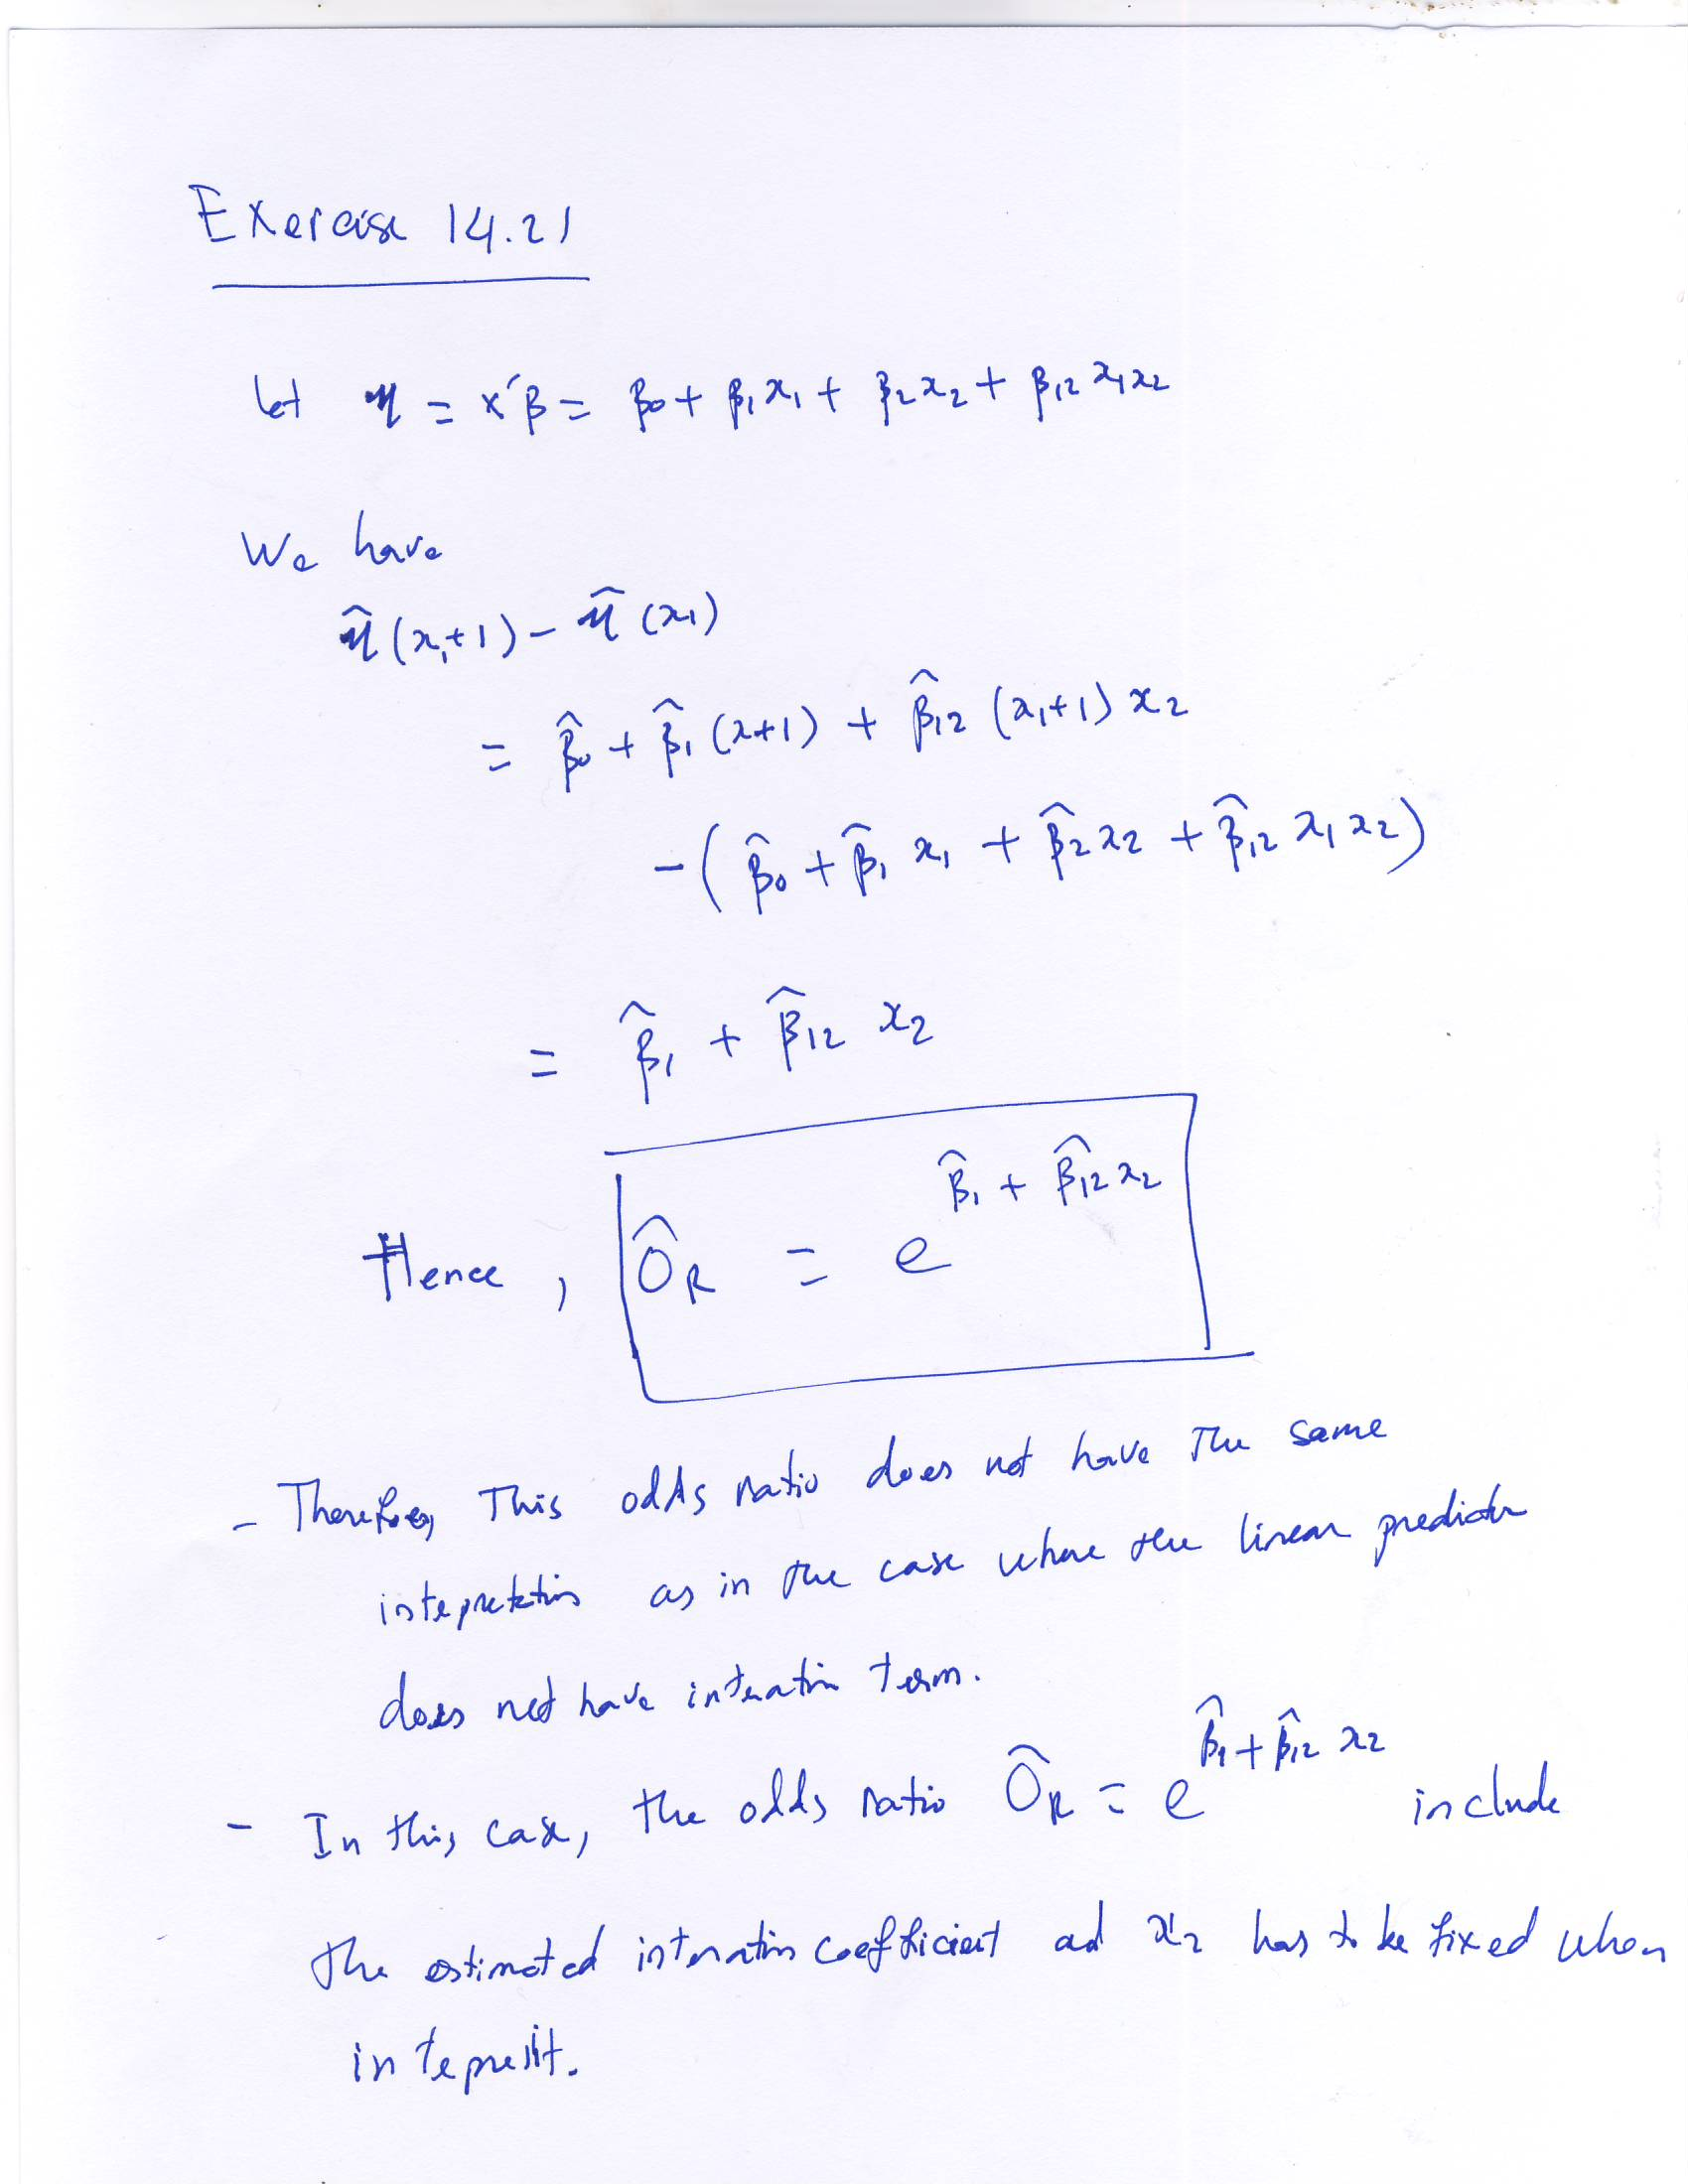 Exercise 14.21
Let η = x'β = β0 + β1x1 + β2x2 + β12 x1x2
We have
η̂(x1+1) - η̂(x1)
= β̂0 + β̂1(x+1) + β̂12(x1+1)x2
-(β̂0 + β̂1 x1 + β̂2x2 + β̂12 x1x2)
= β̂1 + β̂12 x2
Hence, ÔR = e^(β̂1 + β̂12x2)
- Therefore, This odds ratio does not have The same
intepretation as in the case where the linear predictor
does not have interaction term.
- In this case, the odds ratio ÔR = e^(β̂1+β̂12 x2) include
the estimated interaction coefficient and x2 has to be fixed when
intepret it.